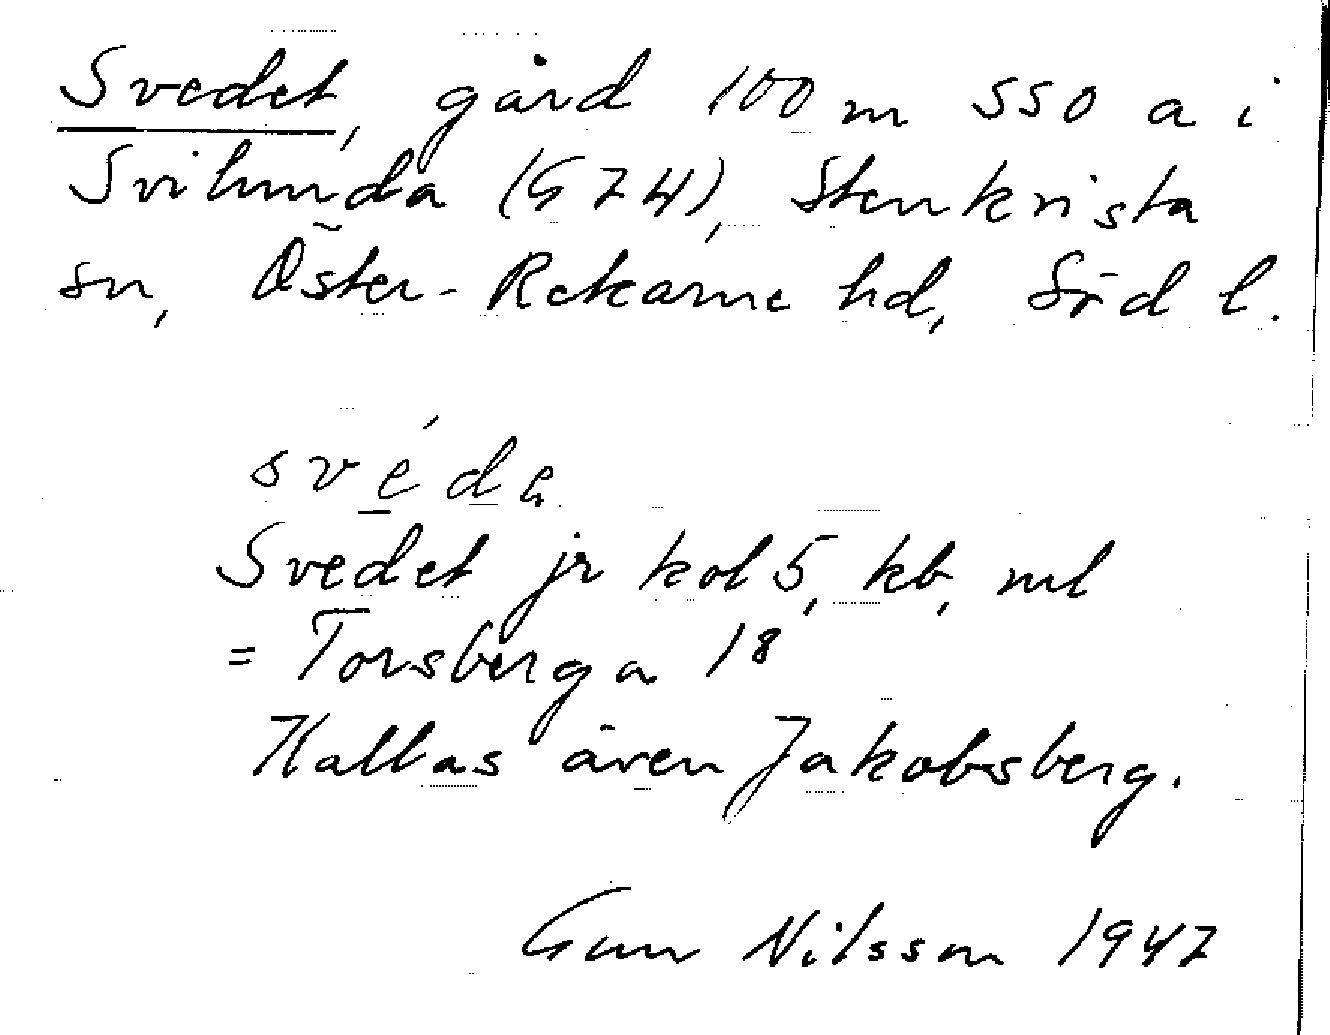 Svedet, gård 100 m SSO a i
Svilunda (G 74), Stenkvista
sn, Öster-Rekarne hd, Söd l.
svéda
Svedet jr kol 5, kb, ml
= Torsberga 18
Kallas även Jakobsberg.
Gun Nilsson 1947